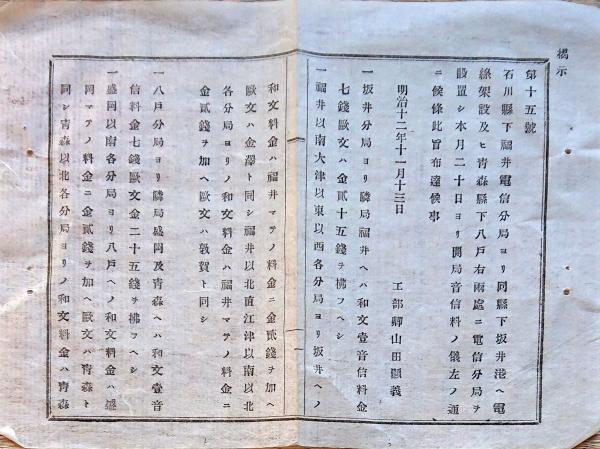 揭示
第十五號
石川縣下福井電信分局ヨリ同縣下坂井港ヘ電
線架設及ヒ靑森縣下八戸右兩處ニ電信分局ヲ
設置シ本月二十日ヨリ開局音信料ノ儀左ノ通
ニ候條此旨布達候事
明治十二年十一月十三日
工部卿山田顯義
一坂井分局ヨリ隣局福井ヘハ和文壹音信料金
七錢歐文ハ金貳十五錢ヲ拂フヘシ
一福井以南大津以東以西各分局ヨリ坂井ヘノ
和文料金ハ福井マテノ料金ニ金貳錢ヲ加ヘ
歐文ハ金澤ト同シ福井以北直江津以南以北
各分局ヨリノ和文料金ハ福井マテノ料金ニ
金貳錢ヲ加ヘ歐文ハ敦賀ト同シ
一八戸分局ヨリ隣局盛岡及靑森ヘハ和文壹音
信料金七錢歐文金二十五錢ヲ拂フヘシ
一盛岡以南各分局ヨリ八戸ヘノ和文料金ハ盛
岡マテノ料金ニ金貳錢ヲ加ヘ歐文ハ靑森ト
同シ靑森以北各分局ヨリノ和文料金ハ靑森